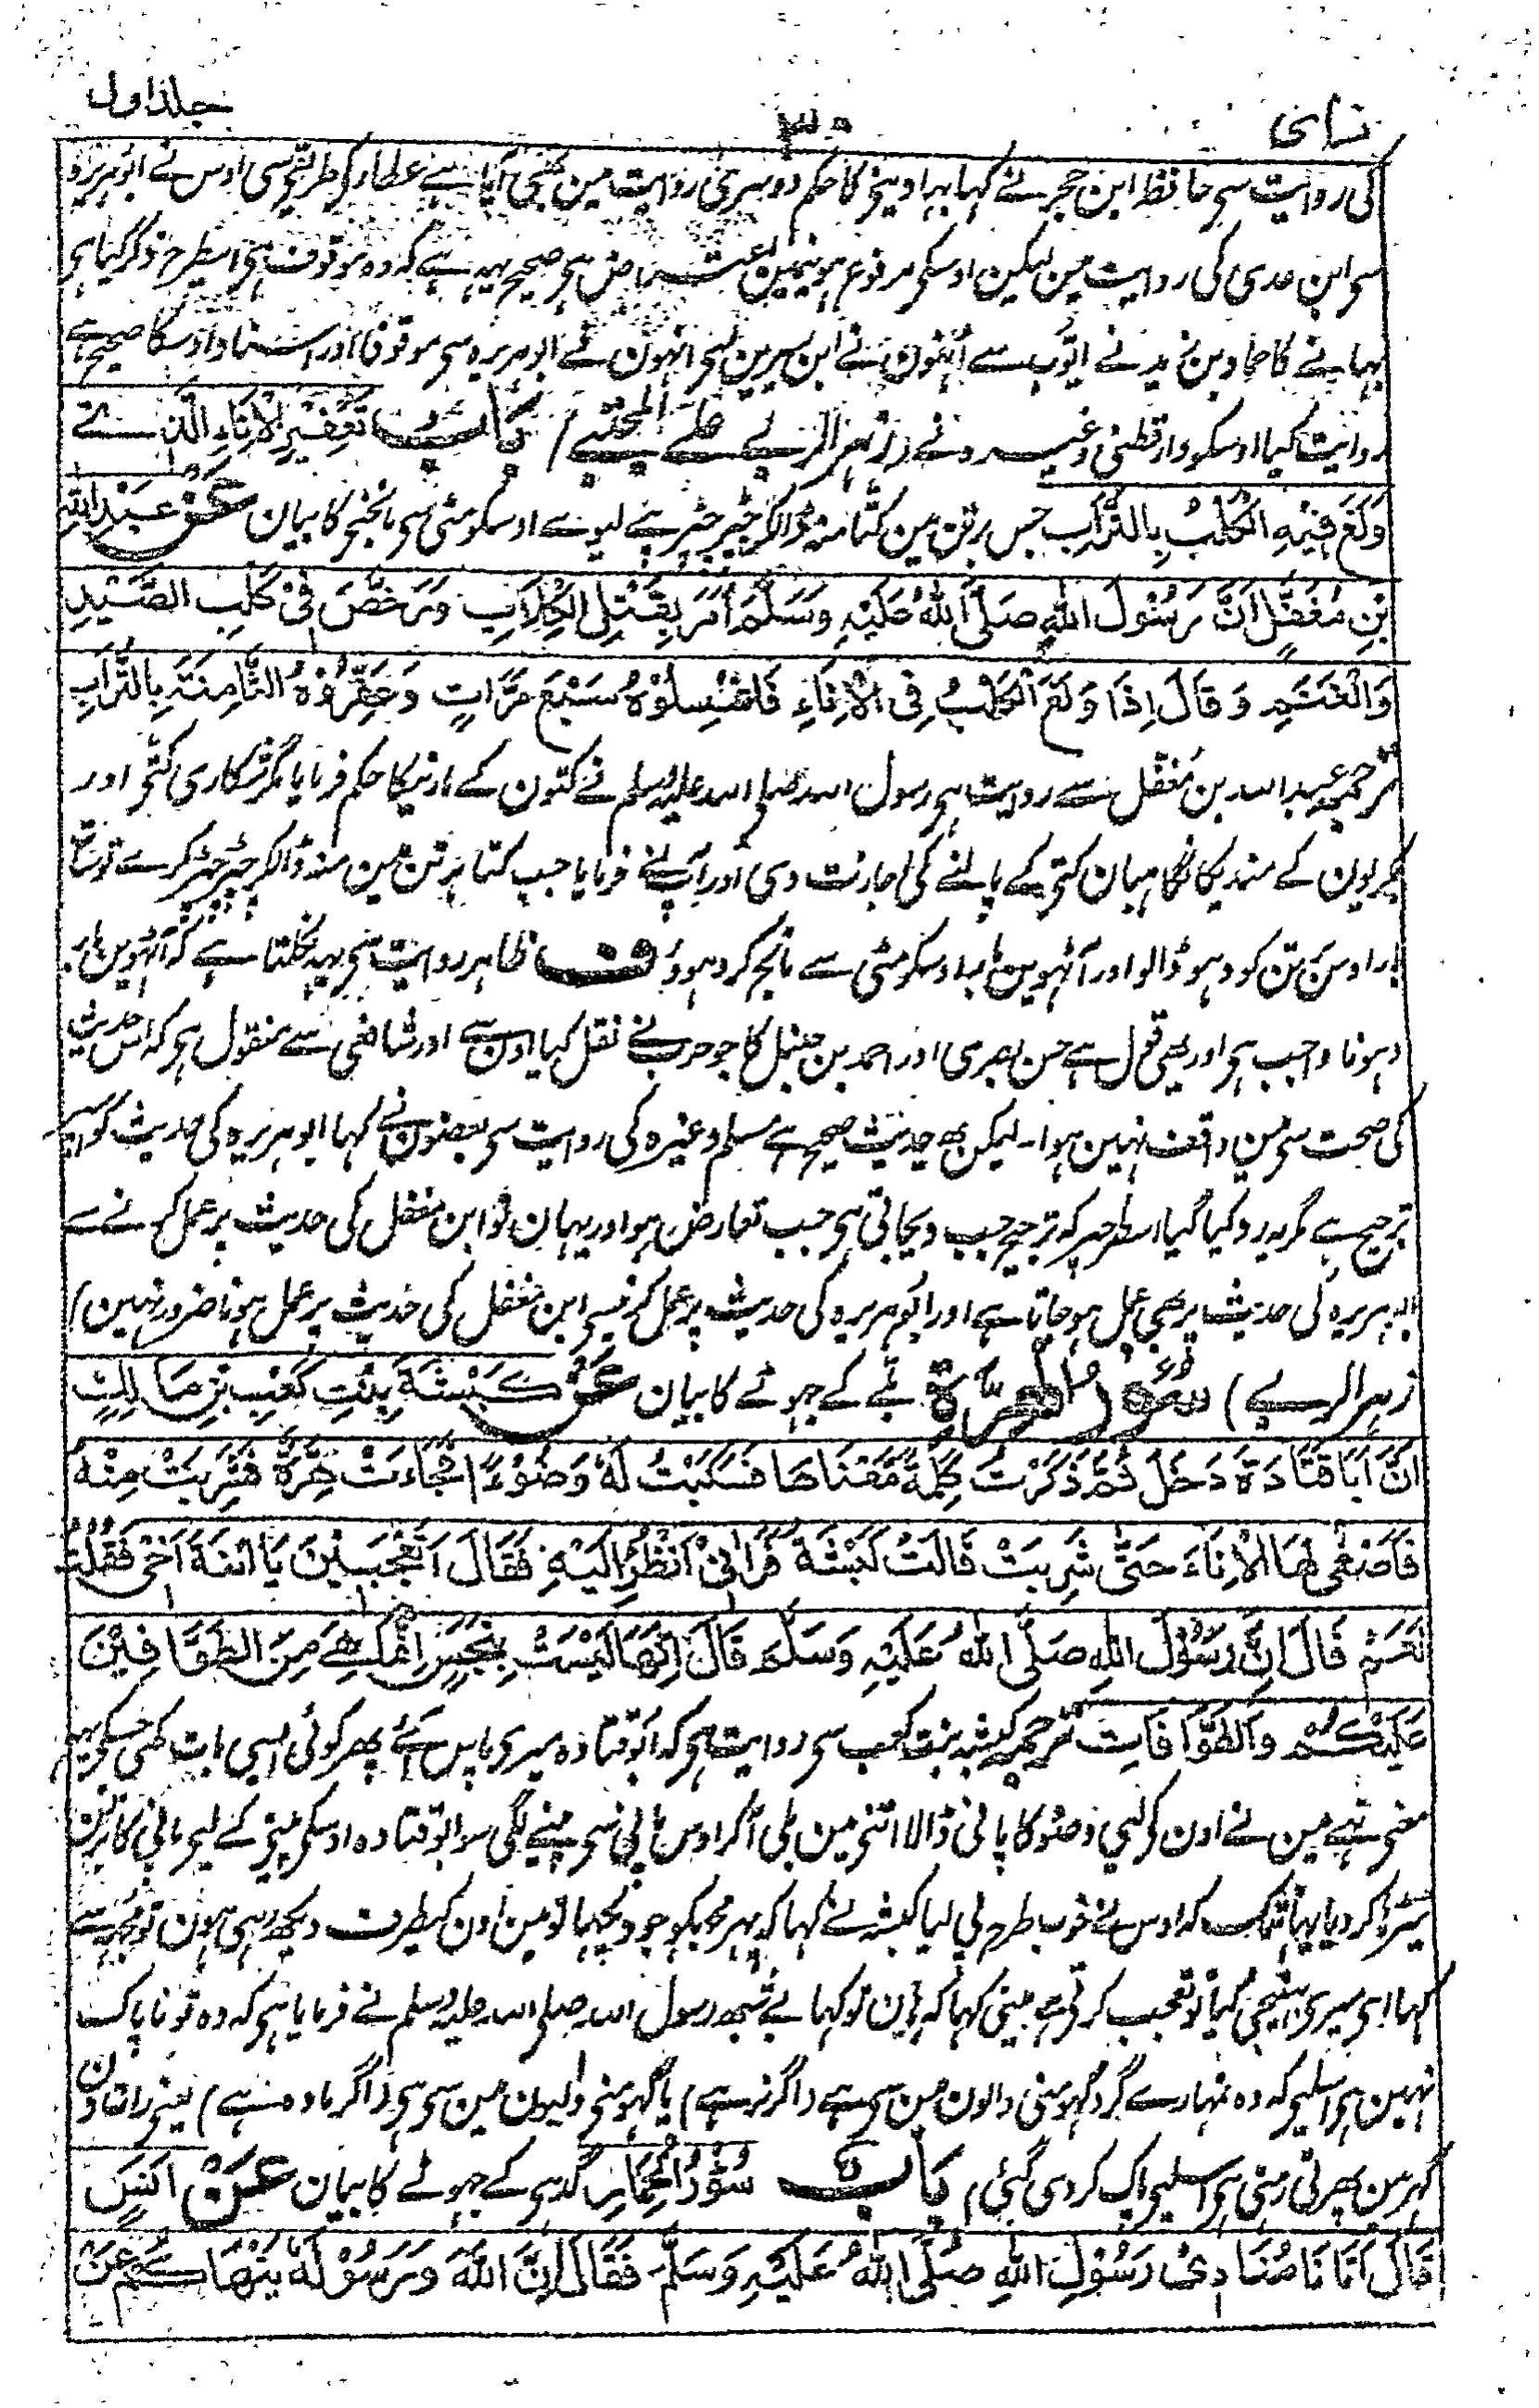 نسائی ۳۰ جلد اول
کی روایت سی حافظ ابن حجر نے کہا بہا دینے کا حکم دوسری روایت مین بھی آیا ہے عطاء کی طریق سی اوس نے ابو ہریرہ
سی ابن عدی کی روایت مین لیکن اوسکی مرفوع ہونیمین اعتراض ہی صحیح یہہ ہے کہ وہ موقوف ہی اسیطرح ذکر کیا ہی
بہانے کا حماد بن زید نے ایوب سے اُنہون نے ابن سیرین سی انہون نے ابو ہریرہ سی موقوفا اور اسناد اوسکا صحیح ہے
روایت کیا اوسکو دارقطنی وغیرہ نے (زہر الربے علے المجتبے) بَابُ تَعْفِيْرِ الْاِنَاءِ الَّذِے
وَلَغَ فِيْهِ الْكَلْبُ بِالتُّرَابِ جس برتن مین کتّا منہ ڈالکر چپڑ چپڑ پے لیوے اوسکو مٹی سی مانجنی کا بیان عَنْ عَبْدِ اللّٰهِ
بْنِ مُغَفَّلٍ اَنَّ رَسُوْلَ اللّٰهِ صَلَّى اللّٰهُ عَلَيْهِ وَسَلَّمَ اَمَرَ بِقَتْلِ الْكِلَابِ وَرَخَّصَ فِيْ كَلْبِ الصَّيْدِ
وَالْغَنَمِ وَقَالَ اِذَا وَلَغَ الْكَلْبُ فِى الْاِنَاءِ فَاغْسِلُوْهُ سَبْعَ مَرَّاتٍ وَعَفِّرُوْهُ الثَّامِنَةَ بِالتُّرَابِ
ترجمہ عبد اللہ بن مُغَفَّل سے روایت ہی رسول اللہ صلی اللہ علیہ وسلم نے کتّون کے مارنیکا حکم فرمایا مگر شکاری کتّی اور
بکریون کے مندیکا نگاہبان کتّی کے پالنے کی اجازت دی اور آپ نے فرمایا جب کتا برتن مین منہ ڈالکر چپڑ چپڑ کرے تو سات
بار اوس برتن کو دہو ڈالو اور آٹھوین بار اوسکو مٹی سے مانج کر دہوؤ ف ظاہر روایت سی یہہ نکلتا ہے کہ آٹھوین بار
دہونا واجب ہی اور یہی قول ہے حسن بصری اور احمد بن حنبل کا جو حرب نے نقل کیا اون سے اور شافعی سے منقول ہی کہ اس حدیث
کی صحت سی مین واقف نہین ہوا۔ لیکن یہ حدیث صحیح ہے مسلم وغیرہ کی روایت سی بعضون نے کہا ابو ہریرہ کی حدیث کو اسپر
ترجیح ہے مگر یہ رد کیا گیا اسطرحپر کہ ترجیح جب دیجاتی ہی جب تعارض ہو اور یہان تو ابن مغفل کی حدیث پر عمل کرنے سے
ابو ہریرہ کی حدیث پر بھی عمل ہو جاتا ہے اور ابو ہریرہ کی حدیث پر عمل کرنیسی ابن مغفل کی حدیث پر عمل ہونا ضرور نہین)
زہر الربے) سُؤْرُ الْهِرَّةِ بلّے کے جہوٹے کا بیان عَنْ كَبْشَةَ بِنْتِ كَعْبِ بْنِ مَالِكٍ
اَنَّ اَبَا قَتَادَةَ دَخَلَ ثُمَّ ذَكَرْتُ كَلِمَةً مَعْنَاهَا فَسَكَبْتُ لَهٗ وَضُوْءًا فَجَاءَتْ هِرَّةٌ فَشَرِبَتْ مِنْهُ
فَاَصْغٰى لَهَا الْاِنَاءَ حَتّٰى شَرِبَتْ قَالَتْ كَبْشَةُ فَرَاٰنِيْ اَنْظُرُ اِلَيْهِ فَقَالَ اَتَعْجَبِيْنَ يَا ابْنَةَ اَخِيْ فَقُلْتُ
نَعَمْ قَالَ اِنَّ رَسُوْلَ اللّٰهِ صَلَّى اللّٰهُ عَلَيْهِ وَسَلَّمَ قَالَ اِنَّهَا لَيْسَتْ بِنَجَسٍ اِنَّمَا هِيَ مِنَ الطَّوَّافِيْنَ
عَلَيْكُمْ وَالطَّوَّافَاتِ ترجمہ کبشہ بنت کعب سی روایت ہی کہ ابو قتادہ میری پاس آئے پھر کوئی ایسی بات کہی جسکی یہہ
معنی تہے مین نے اون کی لیی وضو کا پانی ڈالا اتنی مین بلی آکر اوس پانی سی پینے لگی سو ابو قتادہ اوسکی پینی کے لیی پانی کا برتن
ٹیڑہا کر دیا یہانتک کہ اوس نے خوب طرح پی لیا کبشہ نے کہا کہ پہر مجہکو جو دیکہا تو مین اون کیطرف دیکھ رہی ہون تو مجہہ سے
کہا ای میری بہتیجی کیا تو تعجب کرتی ہے مینی کہا کہ ہان تو کہا بے شبھہ رسول اللہ صلی اللہ علیہ وسلم نے فرمایا ہی کہ وہ تو ناپاک
نہین ہی اسلیی کہ وہ تمہارے گرد گہومنی والون مین سی ہے (اگر نر ہے) یا گہومنی والیون مین سی ہی (اگر مادہ ہے) یعنی رات دن
گہر مین پھرتی رہتی ہی اسلیی پاک کر دی گئی، بَابُ سُؤْرُ الْحِمَارِ گدہی کے جہوٹے کا بیان عَنْ اَنَسٍ
قَالَ اَتَانَا مُنَادِىْ رَسُوْلِ اللّٰهِ صَلَّى اللّٰهُ عَلَيْهِ وَسَلَّمَ فَقَالَ اِنَّ اللّٰهَ وَرَسُوْلَهٗ يَنْهَاكُمْ عَنْ